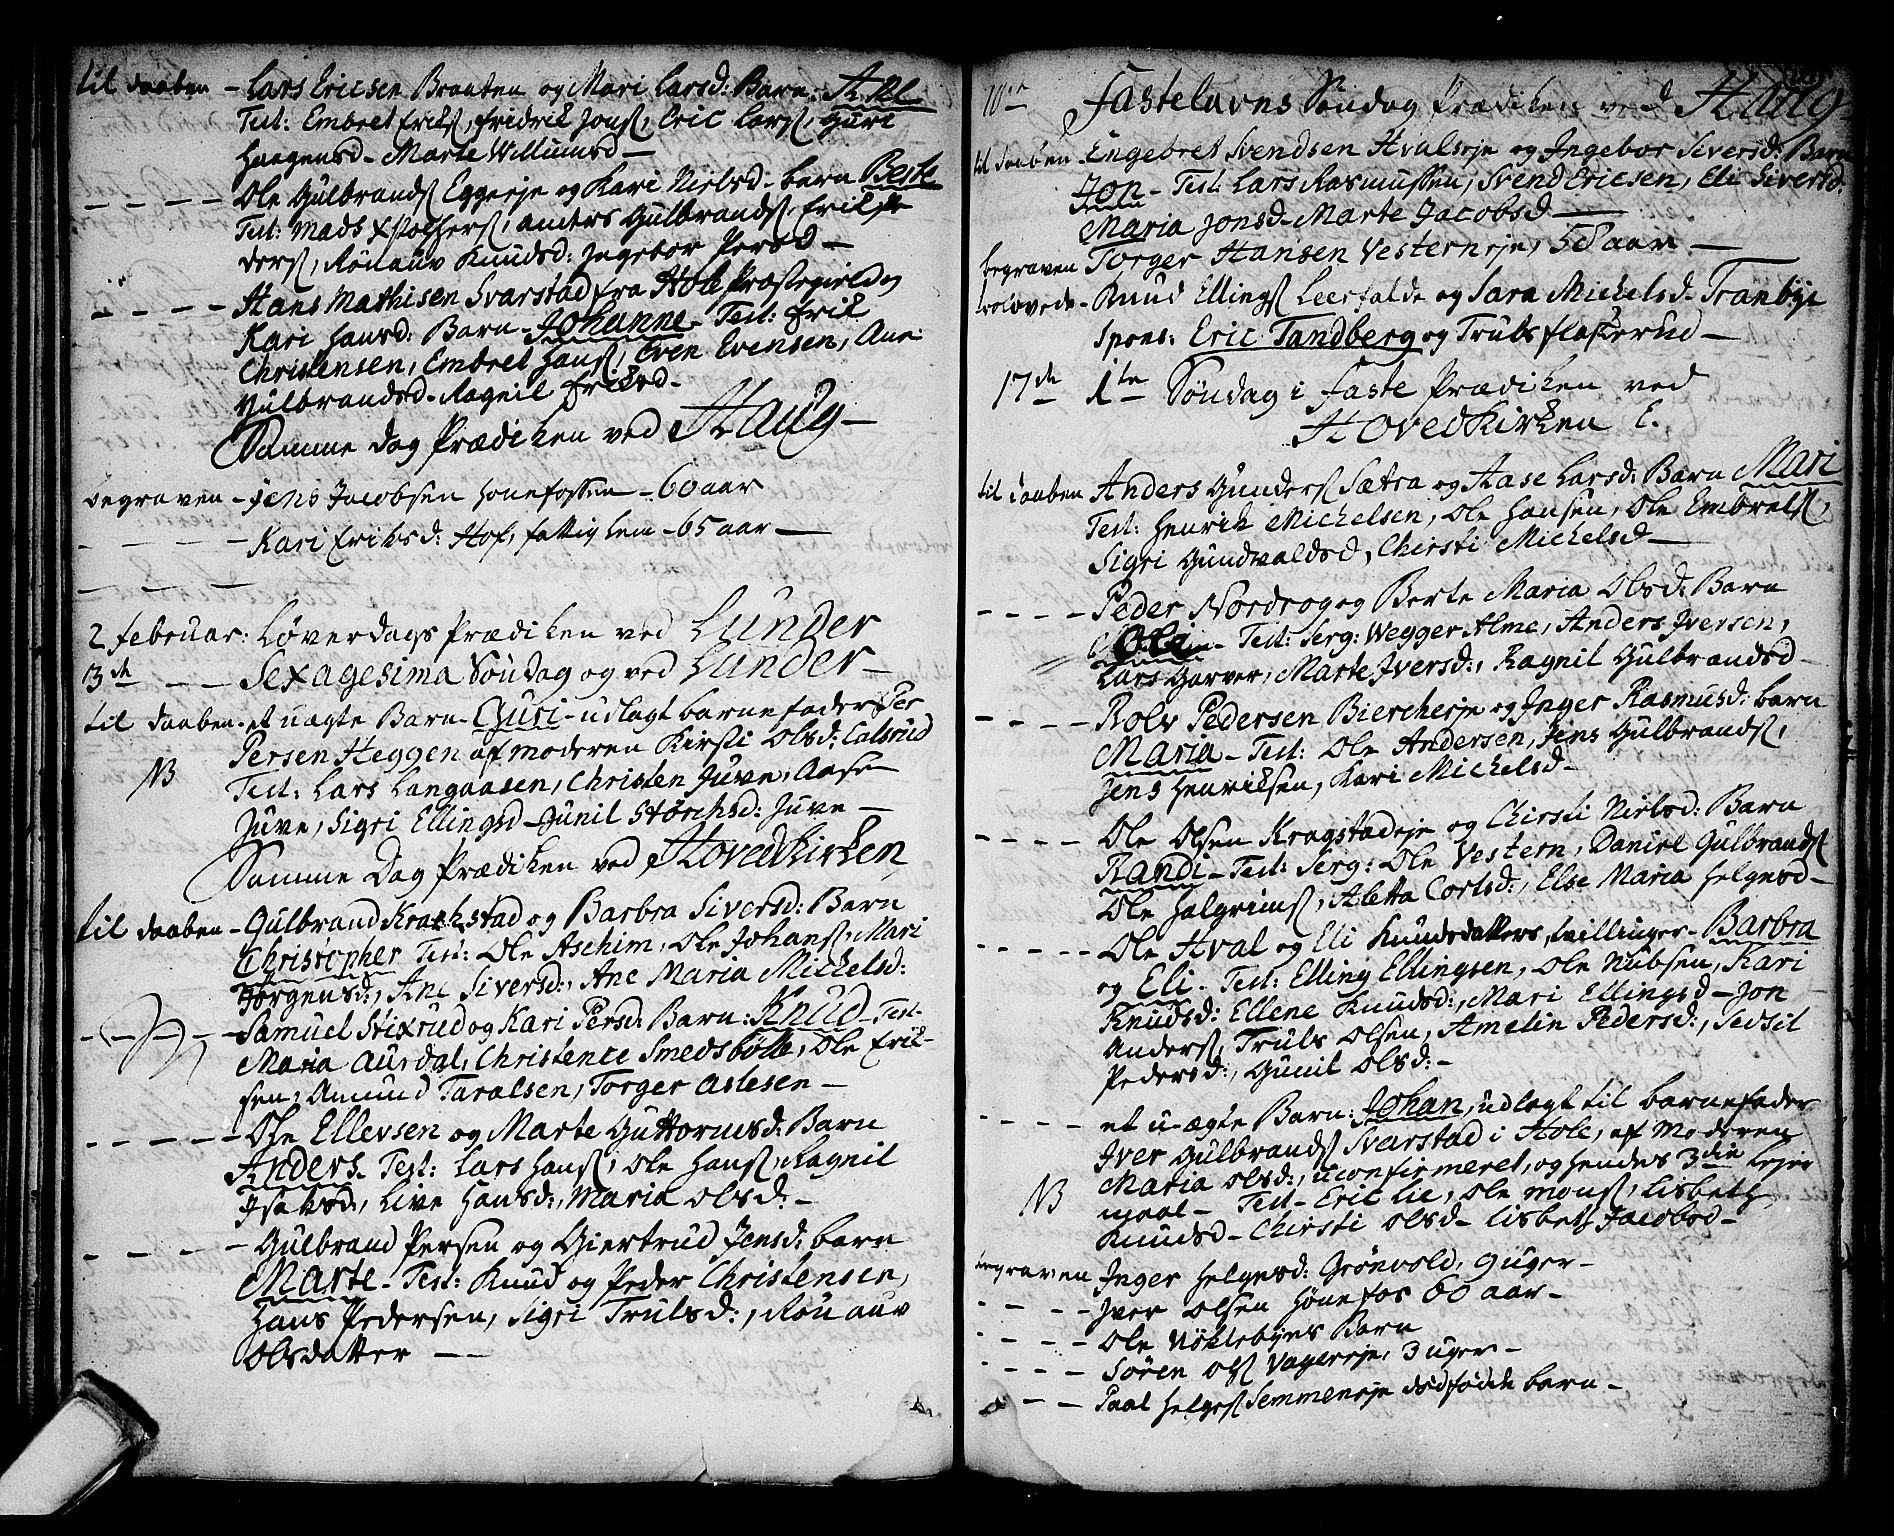 til daaben - Lars Ericsen Braaten og Mari Larsd: Barn:
Test: Embret Eriks, Fridrik Jons, Eric Lars, Guri
Haagensd - Marte Willumsd -
- - - - Ole Gulbrands Eggereje og Kari Nielsd - barn Berte
Test: Mads Anders Gulbrands, Erik
ders, Rönnauv Knudsd: Ingebor Persd -
- - - - Hans Mathisen Svarstad fra Hole Præstegield og
Kari Hansd: Barn - Johanne - Test: Erik
Christensen, Embret Hans, Even Evensen, Ane
Gulbrandsd - Ragnil Eriksd -
Samme Dag Prædiken ved Haug -
begraven - Jens Jacobsen Hønefossen - 60 aar
- - - - Kari Eriksd: Hof, fattig lem - 65 aar -
- - - -
2 Februar: Løverdags Prædiken ved Lunder
3de - - Sexagesima Söndag og ved Lunder -
til daaben - et uægte Barn - Guri - udlagt barnefader Per
Persen Heggen af moderen Kirsti Olsd:
NB Test: Lars Langaasen, Christen Juve, Aase
Juve, Sigri Ellingsd - Gunil Störchsd: Juve -
Samme Dag Prædiken ved Hovedkirken
til daaben - Gulbrand Krachstad og Barbra Siversd: Barn
Christopher Test: Ole Aschim, Ole Johans, Mari
Jörgensd:, Ane Siversd:, Ane Maria Michelsd:
- - - - Samuel Stixrud og Kari Persd: Barn: Knud - Test:
Maria Aurdal, Christence Smedsböle, Ole Erik-
sen, Amund Taralsen, Torger Aslesen -
- - - - Ole Ellevsen og Marte Guttormsd: Barn
Anders. Test: Lars Hans, Ole Hans, Ragnil
Isaksd:, Live Hansd:, Maria Olsd: -
- - - - Gulbrand Persen og Giertrud Jensd: barn
Marte - Test: Knud og Peder Christensen,
Hans Pedersen, Sigri Trulsd:, Rönnauv
Olsdatter -
10de Fastelavns Söndag Prædiken ved Haug
til daaben - Engebret Svendsen Hvalseje og Ingebor Siversd: Barn
Jon - Test: Lars Rasmussen, Svend Ericsen, Eli Siversd:
Maria Jonsd - Marte Jacobsd -
begraven Torger Hansen Vesterneje, 58 aar -
trolovede - Knud Ellings Leerfalde og Sara Michelsd - Tranbÿe
Spons: Eric Tandberg og Truls Flaskerud -
17de 1te Söndag i Faste Prædiken ved
Hovedkirken E.
til daaben Anders Gunders Sætra og Aase Larsd: Barn Mari
Test: Henrik Michelsen, Ole Hansen, Ole Embrets,
Sigri Gundvaldsd, Chirsti Michelsd -
- - - - Peder Nordrog og Berte Maria Olsd: Barn
Ole - Test: Serg: Wegger Alme, Anders Iversen,
Lars Garver, Marte Iversd:, Ragnil Gulbrandsd -
- - - - Rolv Pedersen Biercheeje og Inger Rasmusd: barn
Maria - Test: Ole Andersen, Jens Gulbrands,
Jens Henriksen, Kari Michelsd -
- - - - Ole Olsen Kragstadeje og Chirsti Nielsd: Barn
Randi - Test: Serg: Ole Vestern, Daniel Gulbrands
Ole Halgrims, Aletta Corlsd:, Else Maria Helgesd -
- - - - Ole Hval og Eli Knudsdatters tvillinger - Barbra
og Eli - Test: Elling Ellingsen, Ole Nubsen, Kari
Knudsd: Ellene Knudsd:, Mari Ellingsd - Jon
Anders, Truls Olsen, Amelin Pedersd:, Sedsil
Pedersd:, Gunil Olsd: -
- - - - et u-ægte Barn: Johan, udlagt til barnefader
Iver Gulbrands Svarstad i Hole, af Moderen
Maria Olsd:, uconfirmeret, og hendes 3die Lejer
NB maal - Test - Eric Lie, Ole Mons, Lisbeth
Knudsd - Chirsti Olsd - Lisbeth Jacobsd -
begraven Inger Helgesd: Grönvold, 9 uger -
- - - - Iver Olsen Hönefos 60 aar -
- - - - Ole Nöklebÿes Barn
- - - - Sören Ols Vagereje, 3 uger -
- - - - Paal Helges Semmeneje dödfödde barn -